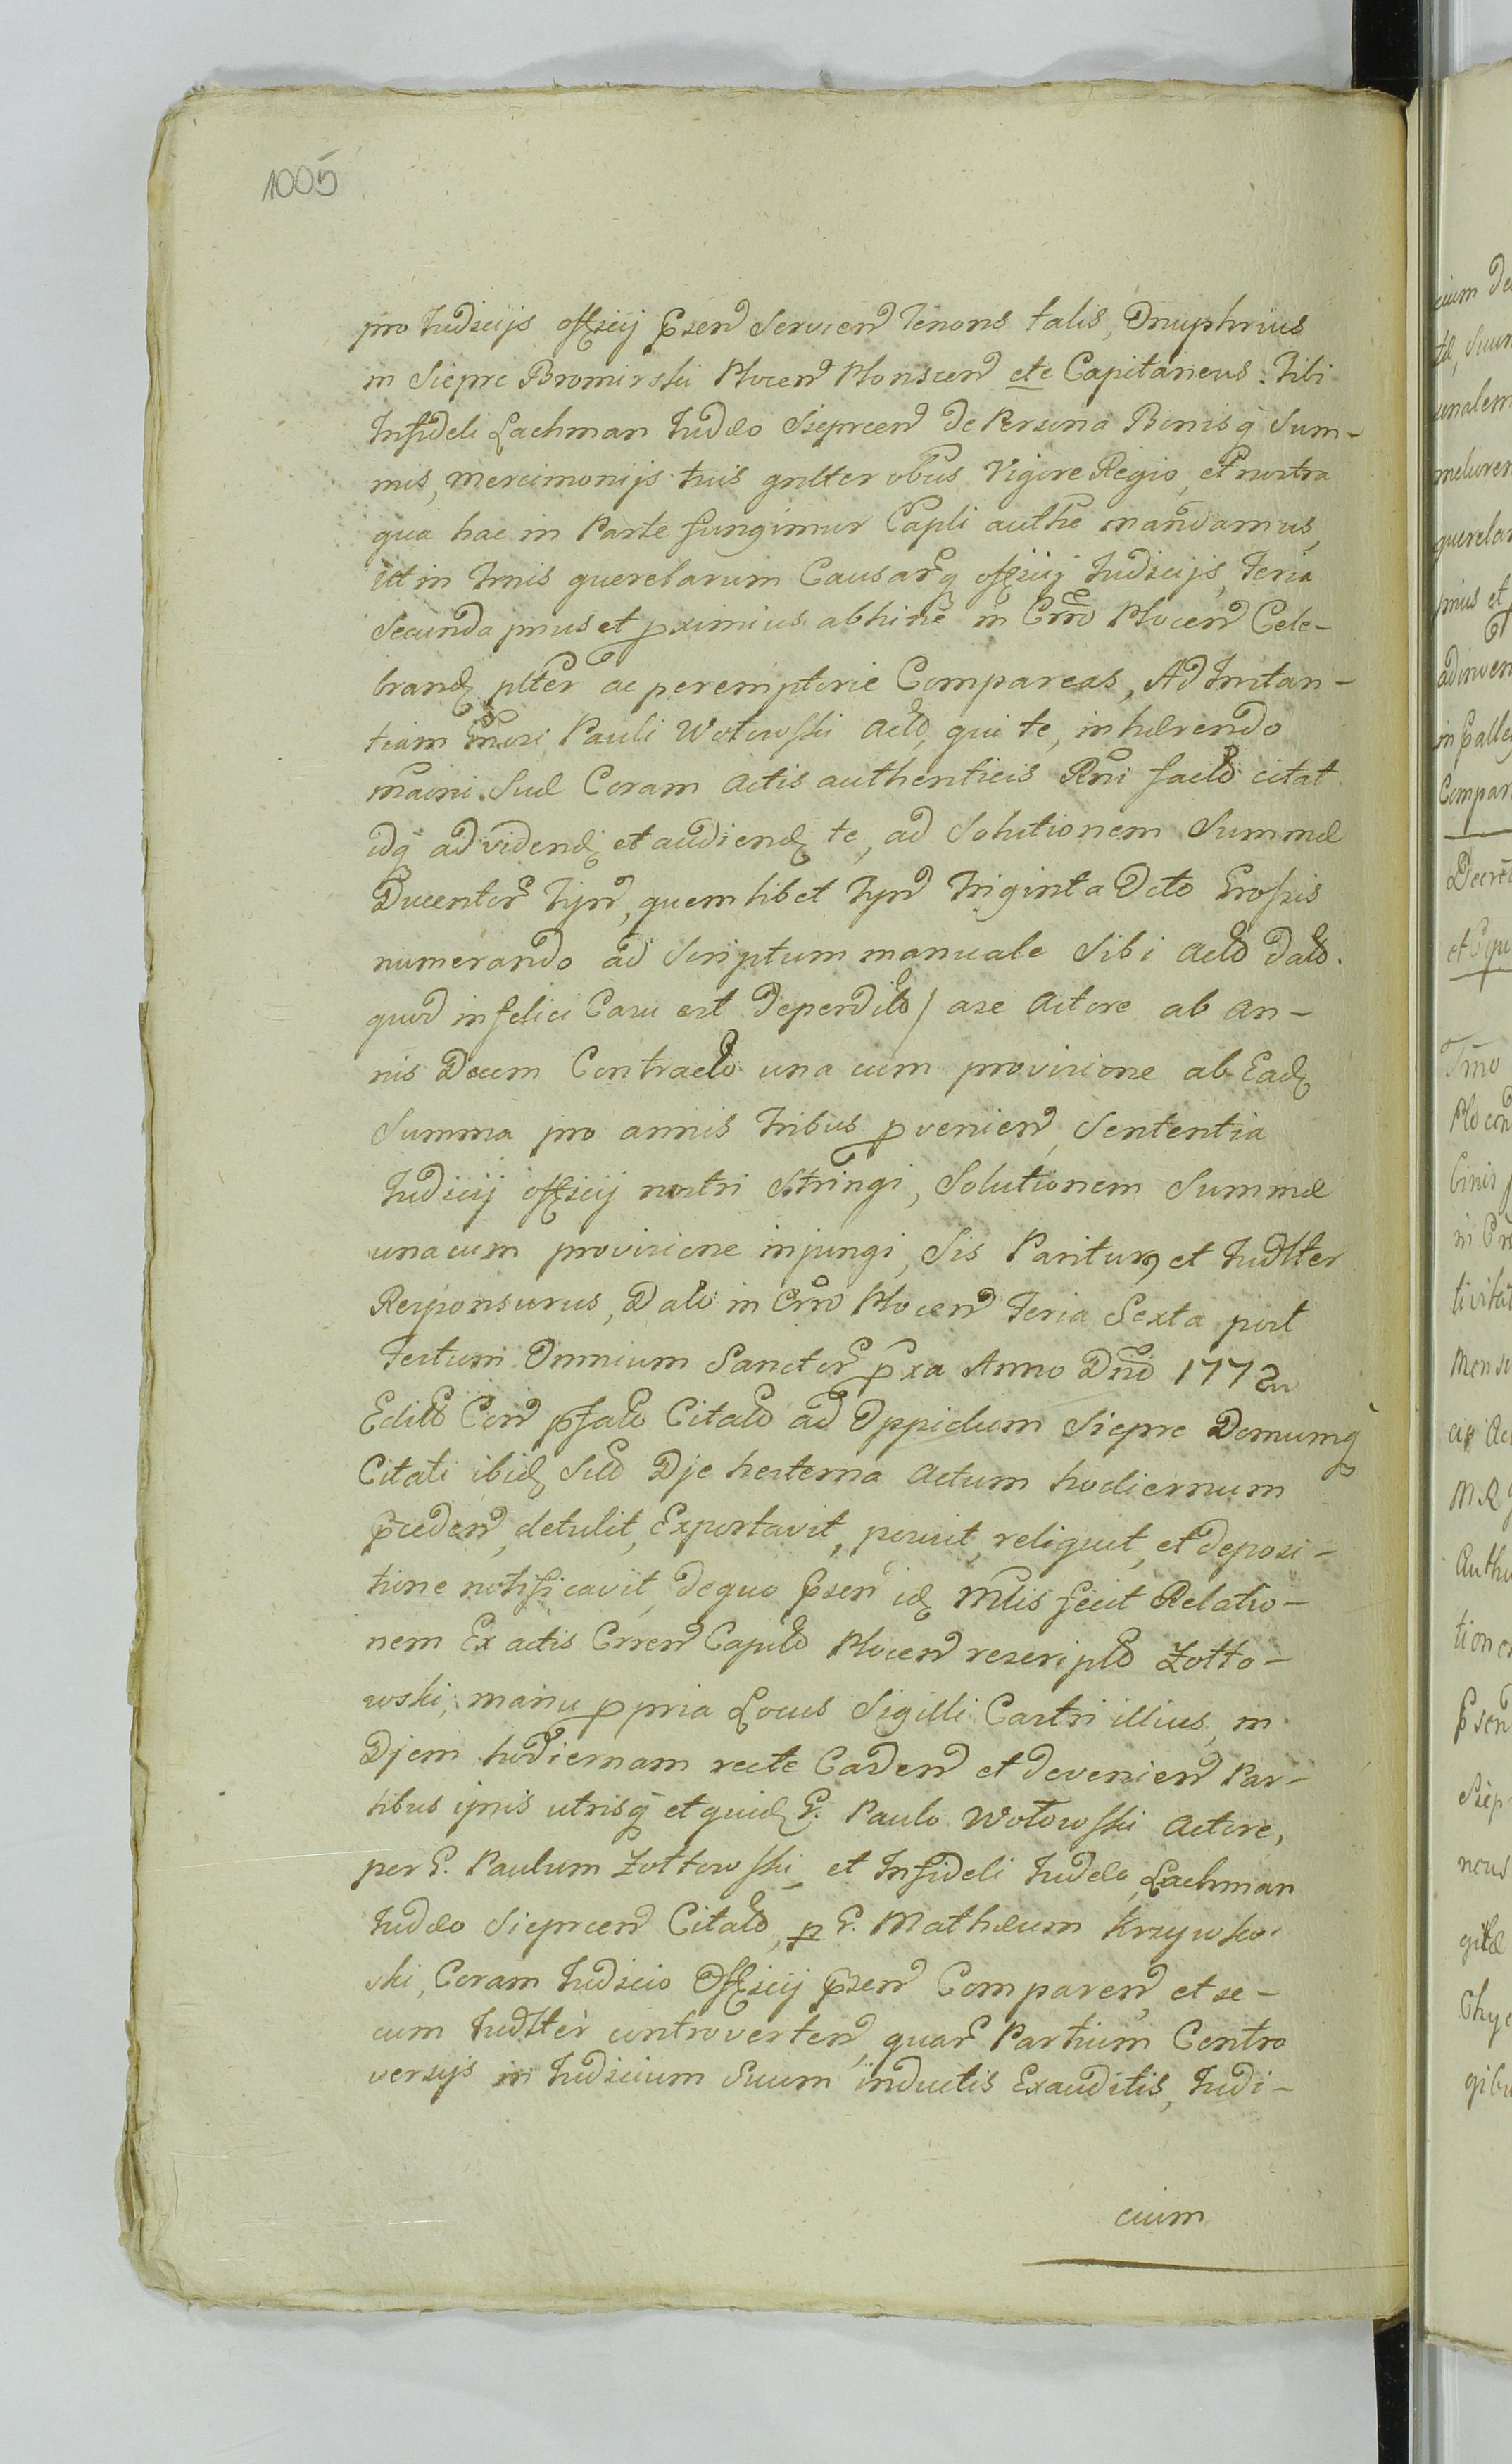 1005
pro Judicijs officij p̃sen̄ Servien̄ Tenoris talis, Onuphrius
in Sieprc Bromirski Plocen̄ Plonscen̄ etc Capitaneus. Tibi
Infideli Lachman Judæo Sieprcen̄ de Persona Bonis q̃ Sum-
mis, mercimonijs tuis gnlter obus Vigore Regio, et nostra
qua hac in Parte fungimur Capli authe mandamus,
ut in Tmis querelarum Causarq̃ officij Judicijs, Feria
Secunda prius et pximius abhinc in Crro Plocen̄ Cele-
brand plter ac peremptorie Compareas, Ad Instan-
tiam Pauli Wołowski Acto, qui te, inhærendo
Suæ Coram Actis authenticis Rni facto citat
idq̃ ad videnđ et audienđ te, ad Solutionem Summæ
Ducentor̃ Tyn̄, quemlibet Tyn̄ Triginta Octo Grossis
numerando ad Scriptum manuale Sibi Acto dato.
quod infelici Casu est deperdito/ a se Actore ab An-
nis Decem Contracto una cum provisione ab Eađ
Summa pro annis tribus pvenien̄, Sententia
Judicij officij nostri Stringi, Solutionem Summæ
unacum provisione injungi, Sis Pariturꝰ et Judlter
Responsurus, Dato in Crro Plocen̄ Feria Sexta post
Festum Omnium Sanctor̃ pxa Anno Dno 1772
Edito Con̄ p̃fato Citato ad Oppidum Sieprc Domumq̃
Citati ibiđ Dje hesterna Actum hodiernum
p̃ceden̄, detulit, Exportavit, posuit, reliquit, et deposi-
tione notificavit, de quo p̃sen̄ iđ Mlis fecit Relatio-
nem Ex actis Crren̄ Caplo Plocen̄ rescripto Zołto-
wski, manu ppria Locus Sigilli Castri illius, in
Djem hodiernam recte Caden̄ et devenien̄ Par-
tibus ipsis utrisq̃ et quiđ G. Paulo Wołowski Actore,
per G. Paulum Zołtowski, et Infideli Judæo Lachman
Judæo Sieprcen̄ Citato, p G. Mathæum Krzywko-
ski, Coram Judicio Officij p̃sen̄ Comparen̄, et se-
cum Judlter controverten̄, quar̃ Partium Contro
versijs in Judicium Suum inductis Exauditis, Judi-
cium